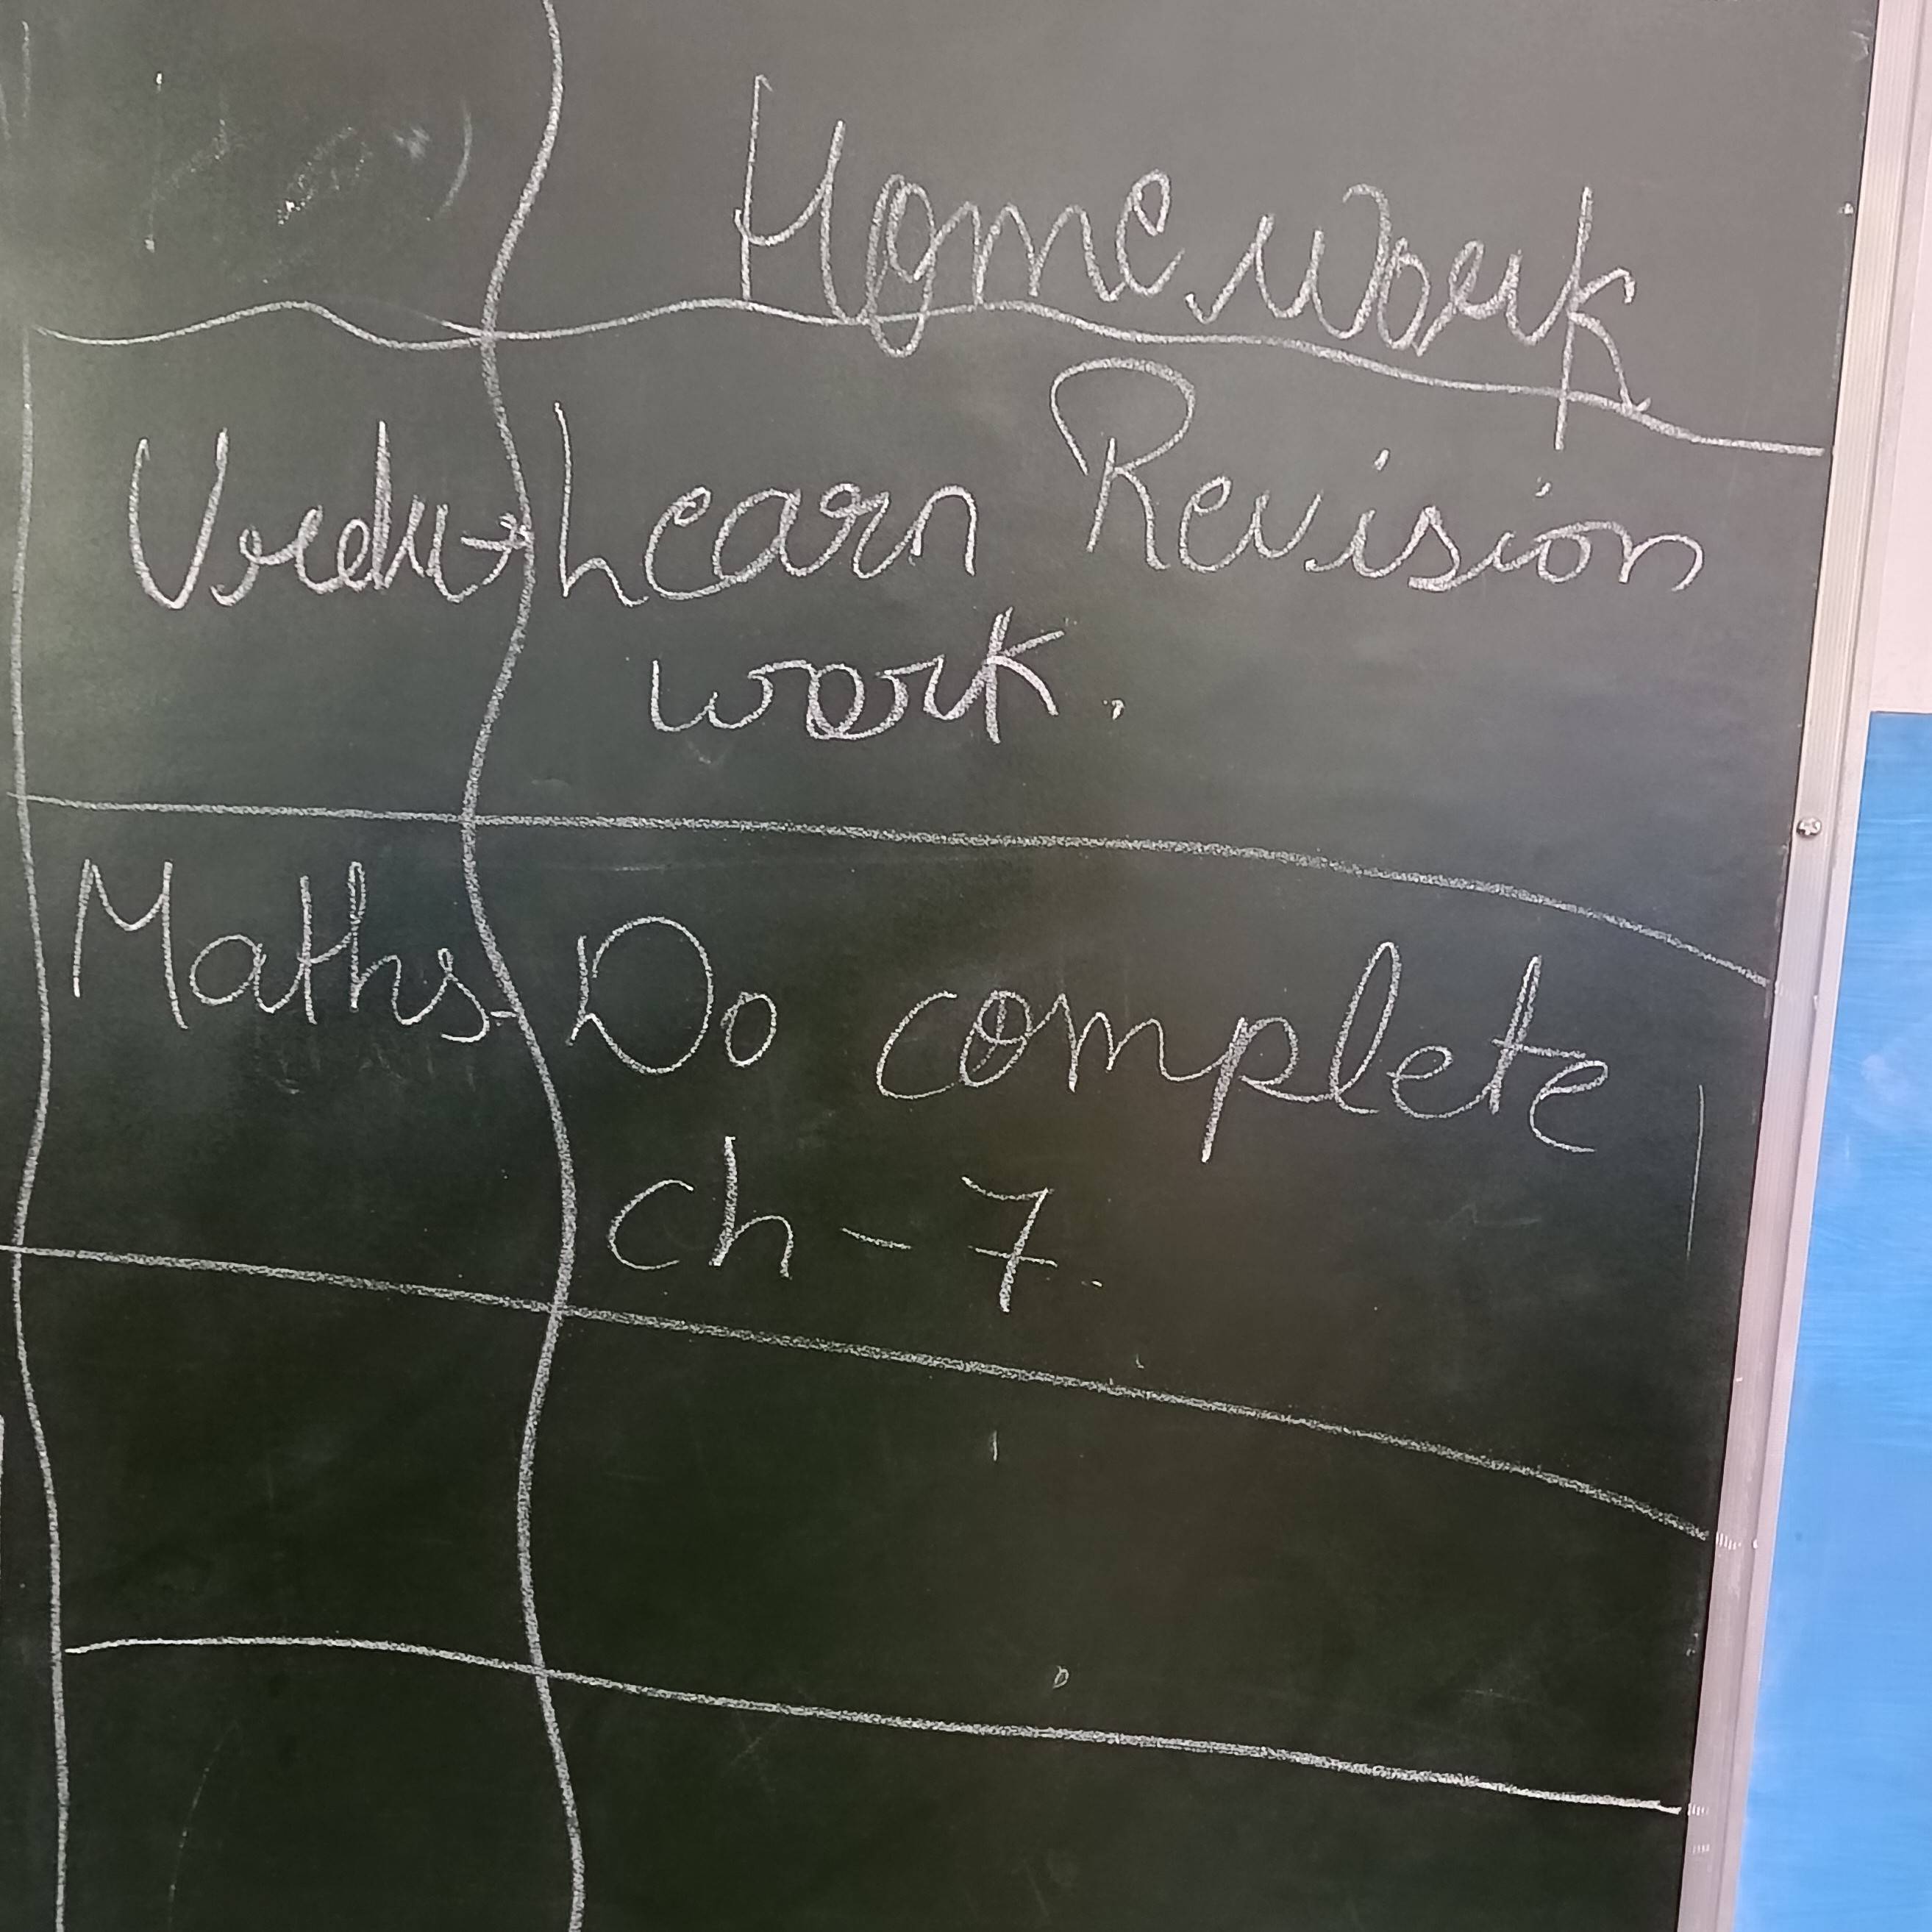 Home Work
Urdu → Learn Revision
work.
Maths - Do complete
Ch - 7.